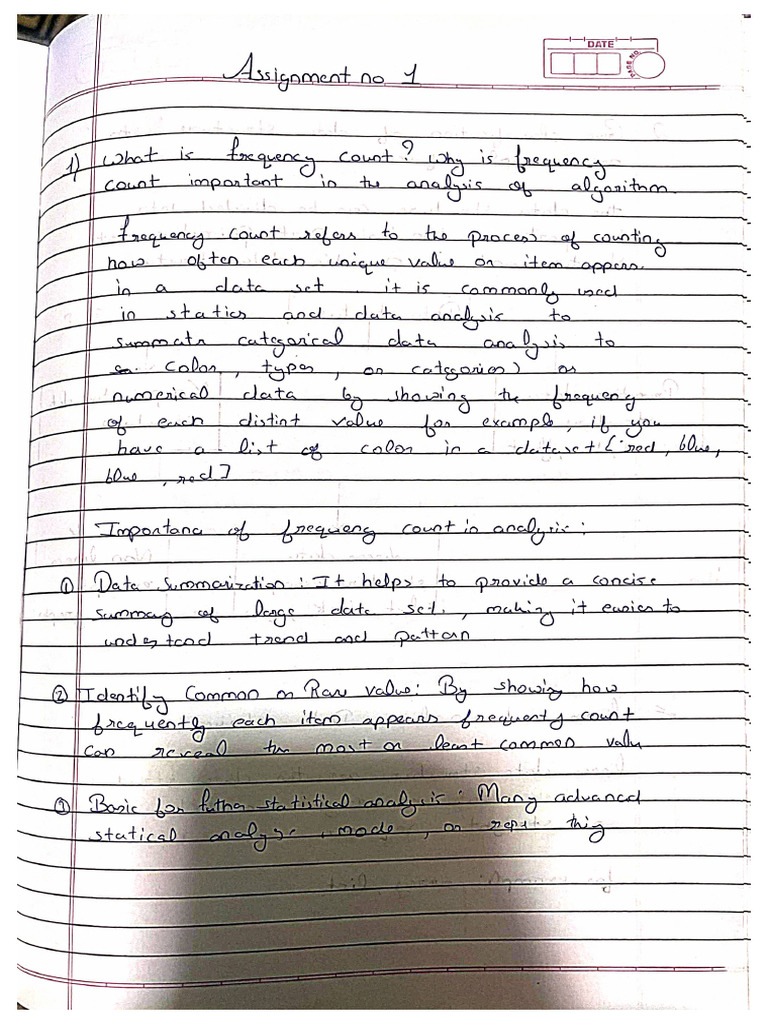 DATE
PAGE NO.
Assignment no 1
1) What is frequency count? Why is frequency
count important in the analysis of algorithm.
frequency count refers to the process of counting
how often each unique value or item appers.
in a data set. it is commonly used
in statics and data analysis to
categorical data analysis to
color, types, or categories) or
numerical data by showing the frequency
of each distint value for example, if you
have a list of color in a dataset [red, blue,
blue, red]
Importanc of frequency count in analysis:
① Data Summarization: It helps to provide a concise
summary of large data set, making it easier to
understand trend and pattern
② Identify Common or Rare value: By showing how
frequently each item appears frequently count
can reveal the most or least common value
③ Basic for futher statistical analysis: Many advanced
statical analysc, mode, or